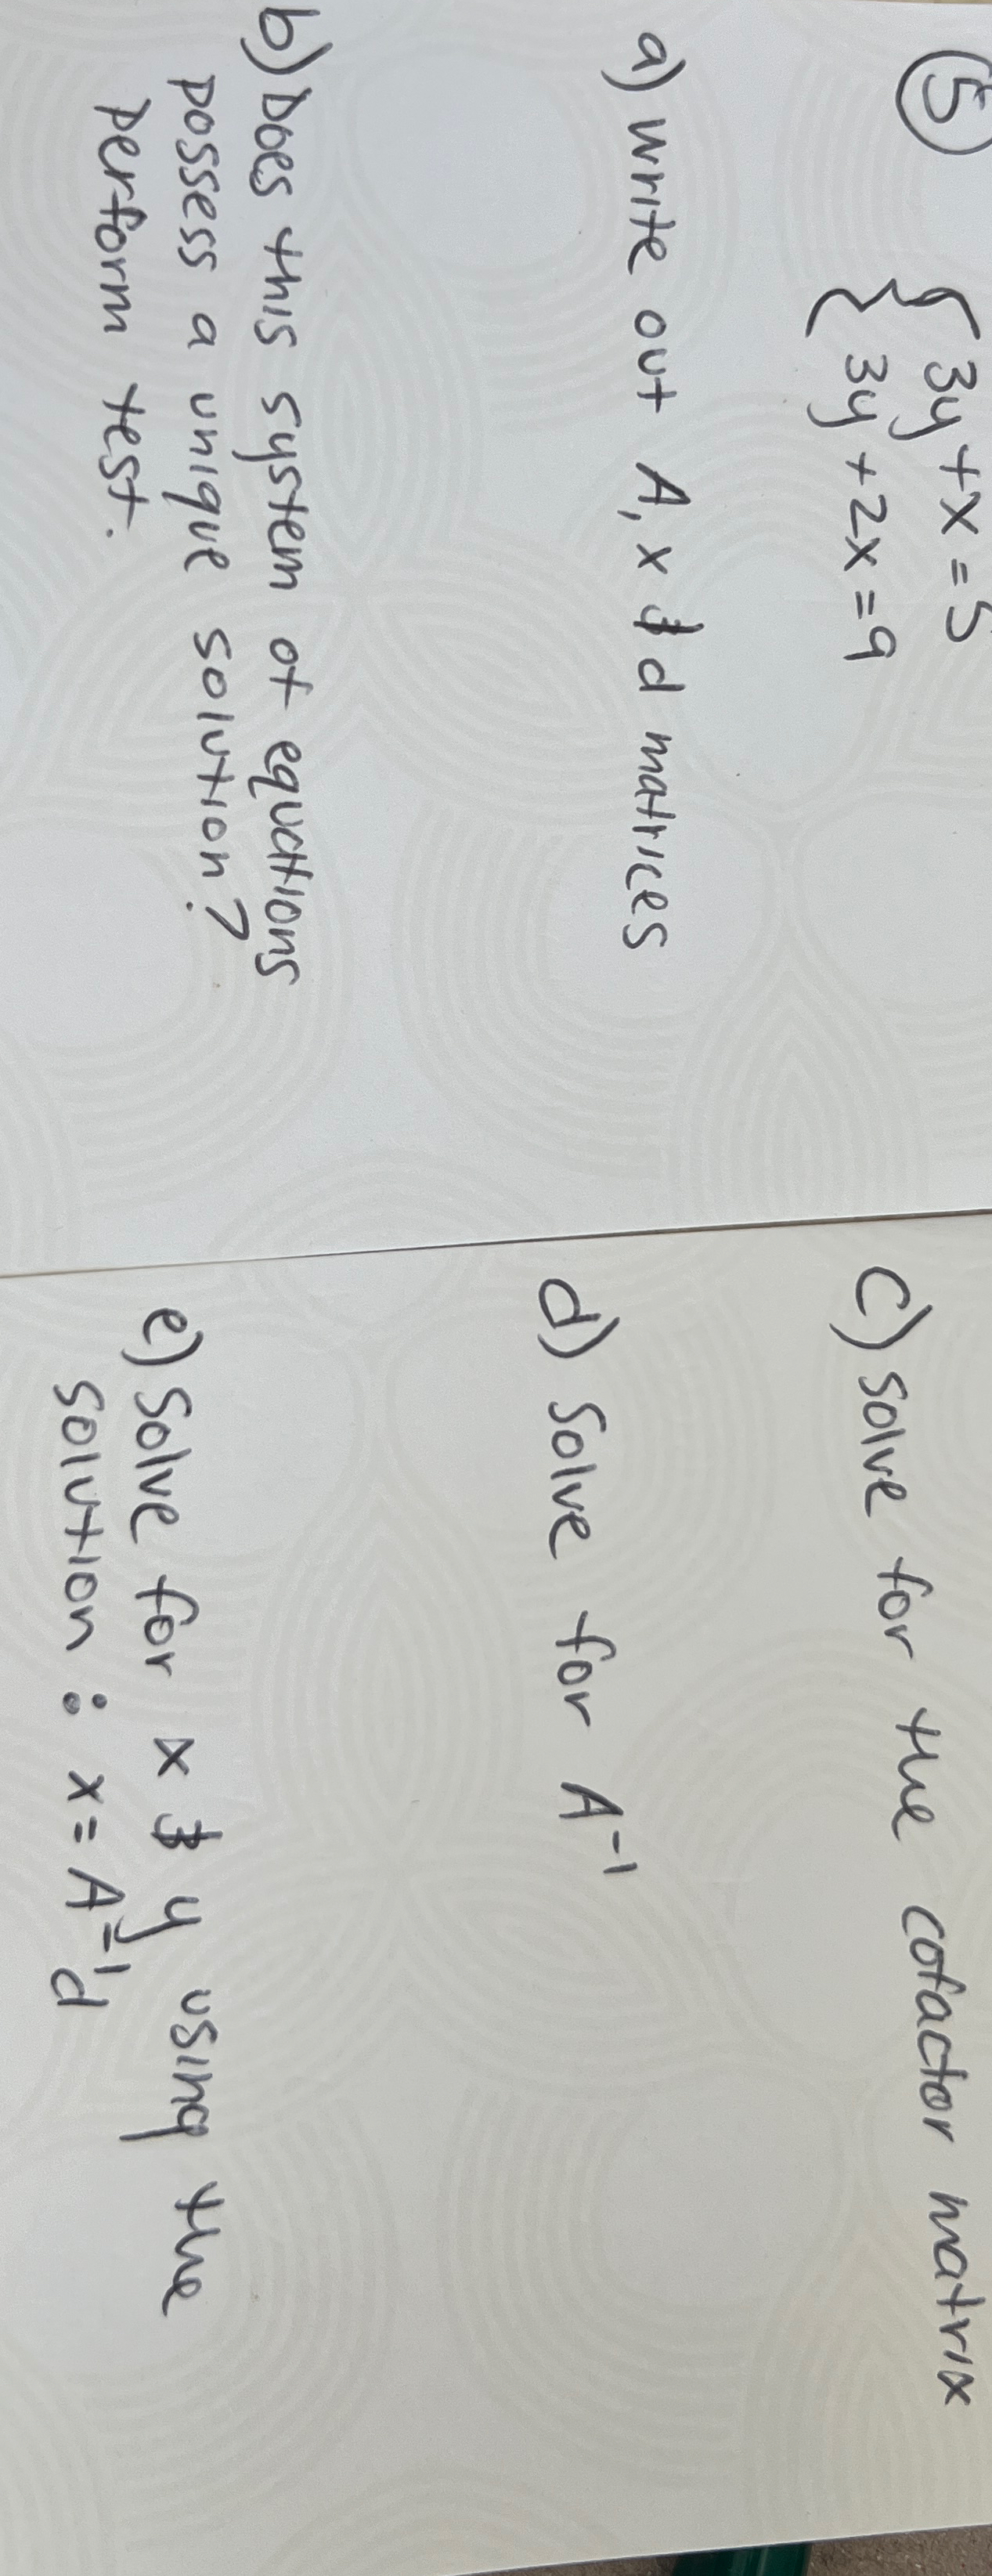 5
3y + x = 5
3y + 2x = 9
a) write out A, x & d matrices
b) Does this system of equations
possess a unique solution?
perform test.
c) solve for the cofactor matrix
d) Solve for A⁻¹
e) Solve for x & y using the
solution : x = A⁻¹d